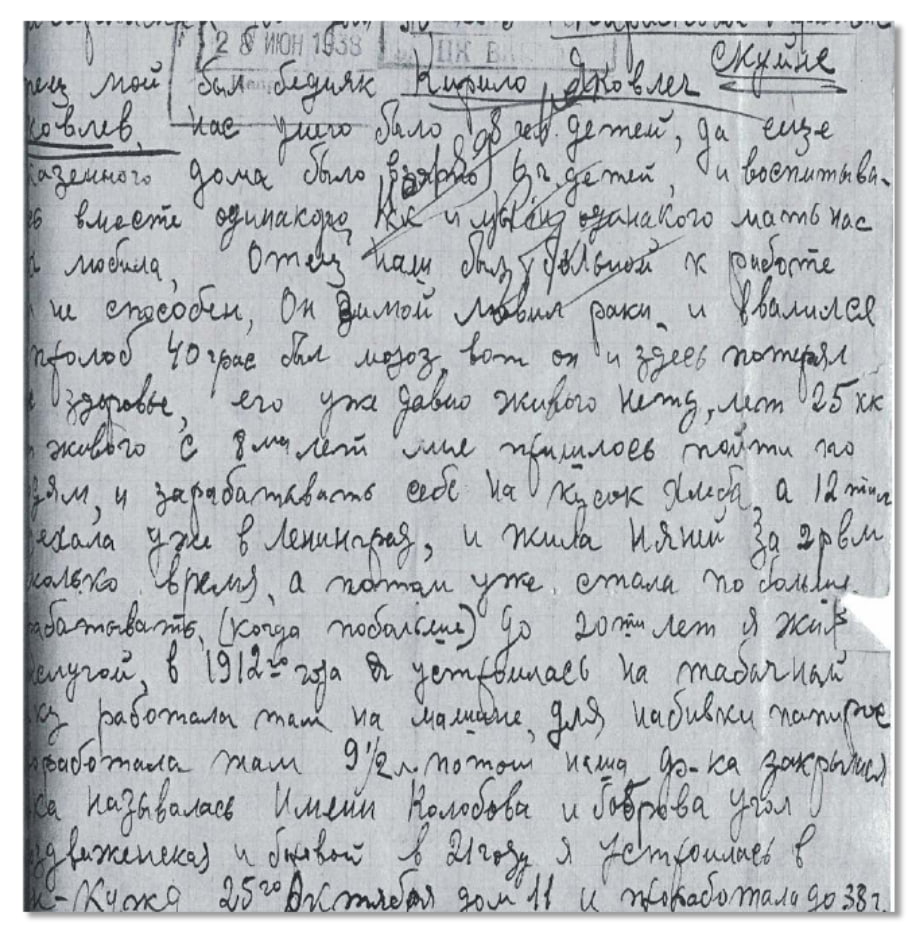 28 ИЮН 1938
Скуйне
мой был бедняк Кирило Яковлеч
ковлев, нас унего было 8 чел. детей, да еще
азенного дома было взято детей, и воспитыва-
вместе одинакого, кк и мы одинакого мать нас
любила, Отец наш был больной к работе
не способен, Он Зимой ловил раки и ввалился
пролоб 40 грас был мозоз, вот он и здесь потерял
здоровье, его уже давно живого нету, лет 25 кк
живого с 8ми лет мне пришлось пойти по
дям, и зарабатывать себе на кусок хлеба, а 12 тил
ехала уже в Ленинград, и жила няней за 2 рвм
колько время, а потом уже стала по больше
рабатывать, (когда побольше) до 20ти лет я жил
слугой, в 1912го года я устроилась на табачный
работала там на машине, для набивки папирос
работала там 9½ л. потом наша ф-ка закрылися
ка называлась Имени Колобова и Боброва угол
здвиженская и бновой в 21 году я устроилась в
25го Октября дом 11 и проработала до 38 г.